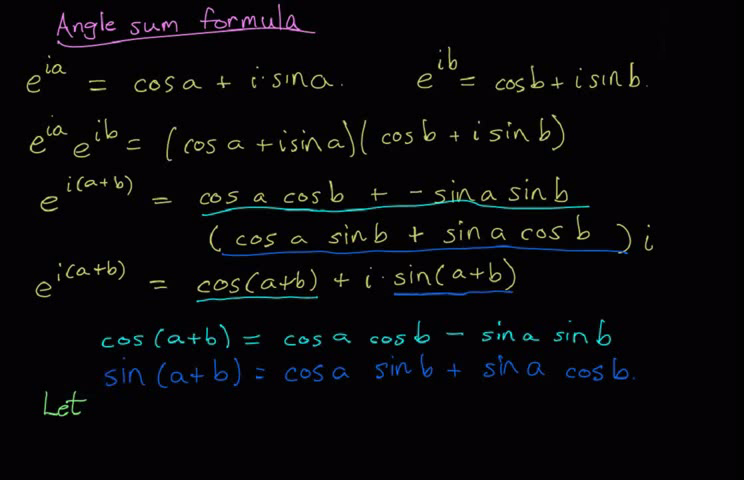 Angle sum formula
e^{ia} = cos a + i · sin a. e^{ib} = cos b + i sin b.
e^{ia} e^{ib} = (cos a + i sin a)(cos b + i sin b)
e^{i(a+b)} = cos a cos b + - sin a sin b
(cos a sin b + sin a cos b) i
e^{i(a+b)} = cos(a+b) + i · sin(a+b)
cos (a+b) = cos a cos b - sin a sin b
sin (a+b) = cos a sin b + sin a cos b.
Let